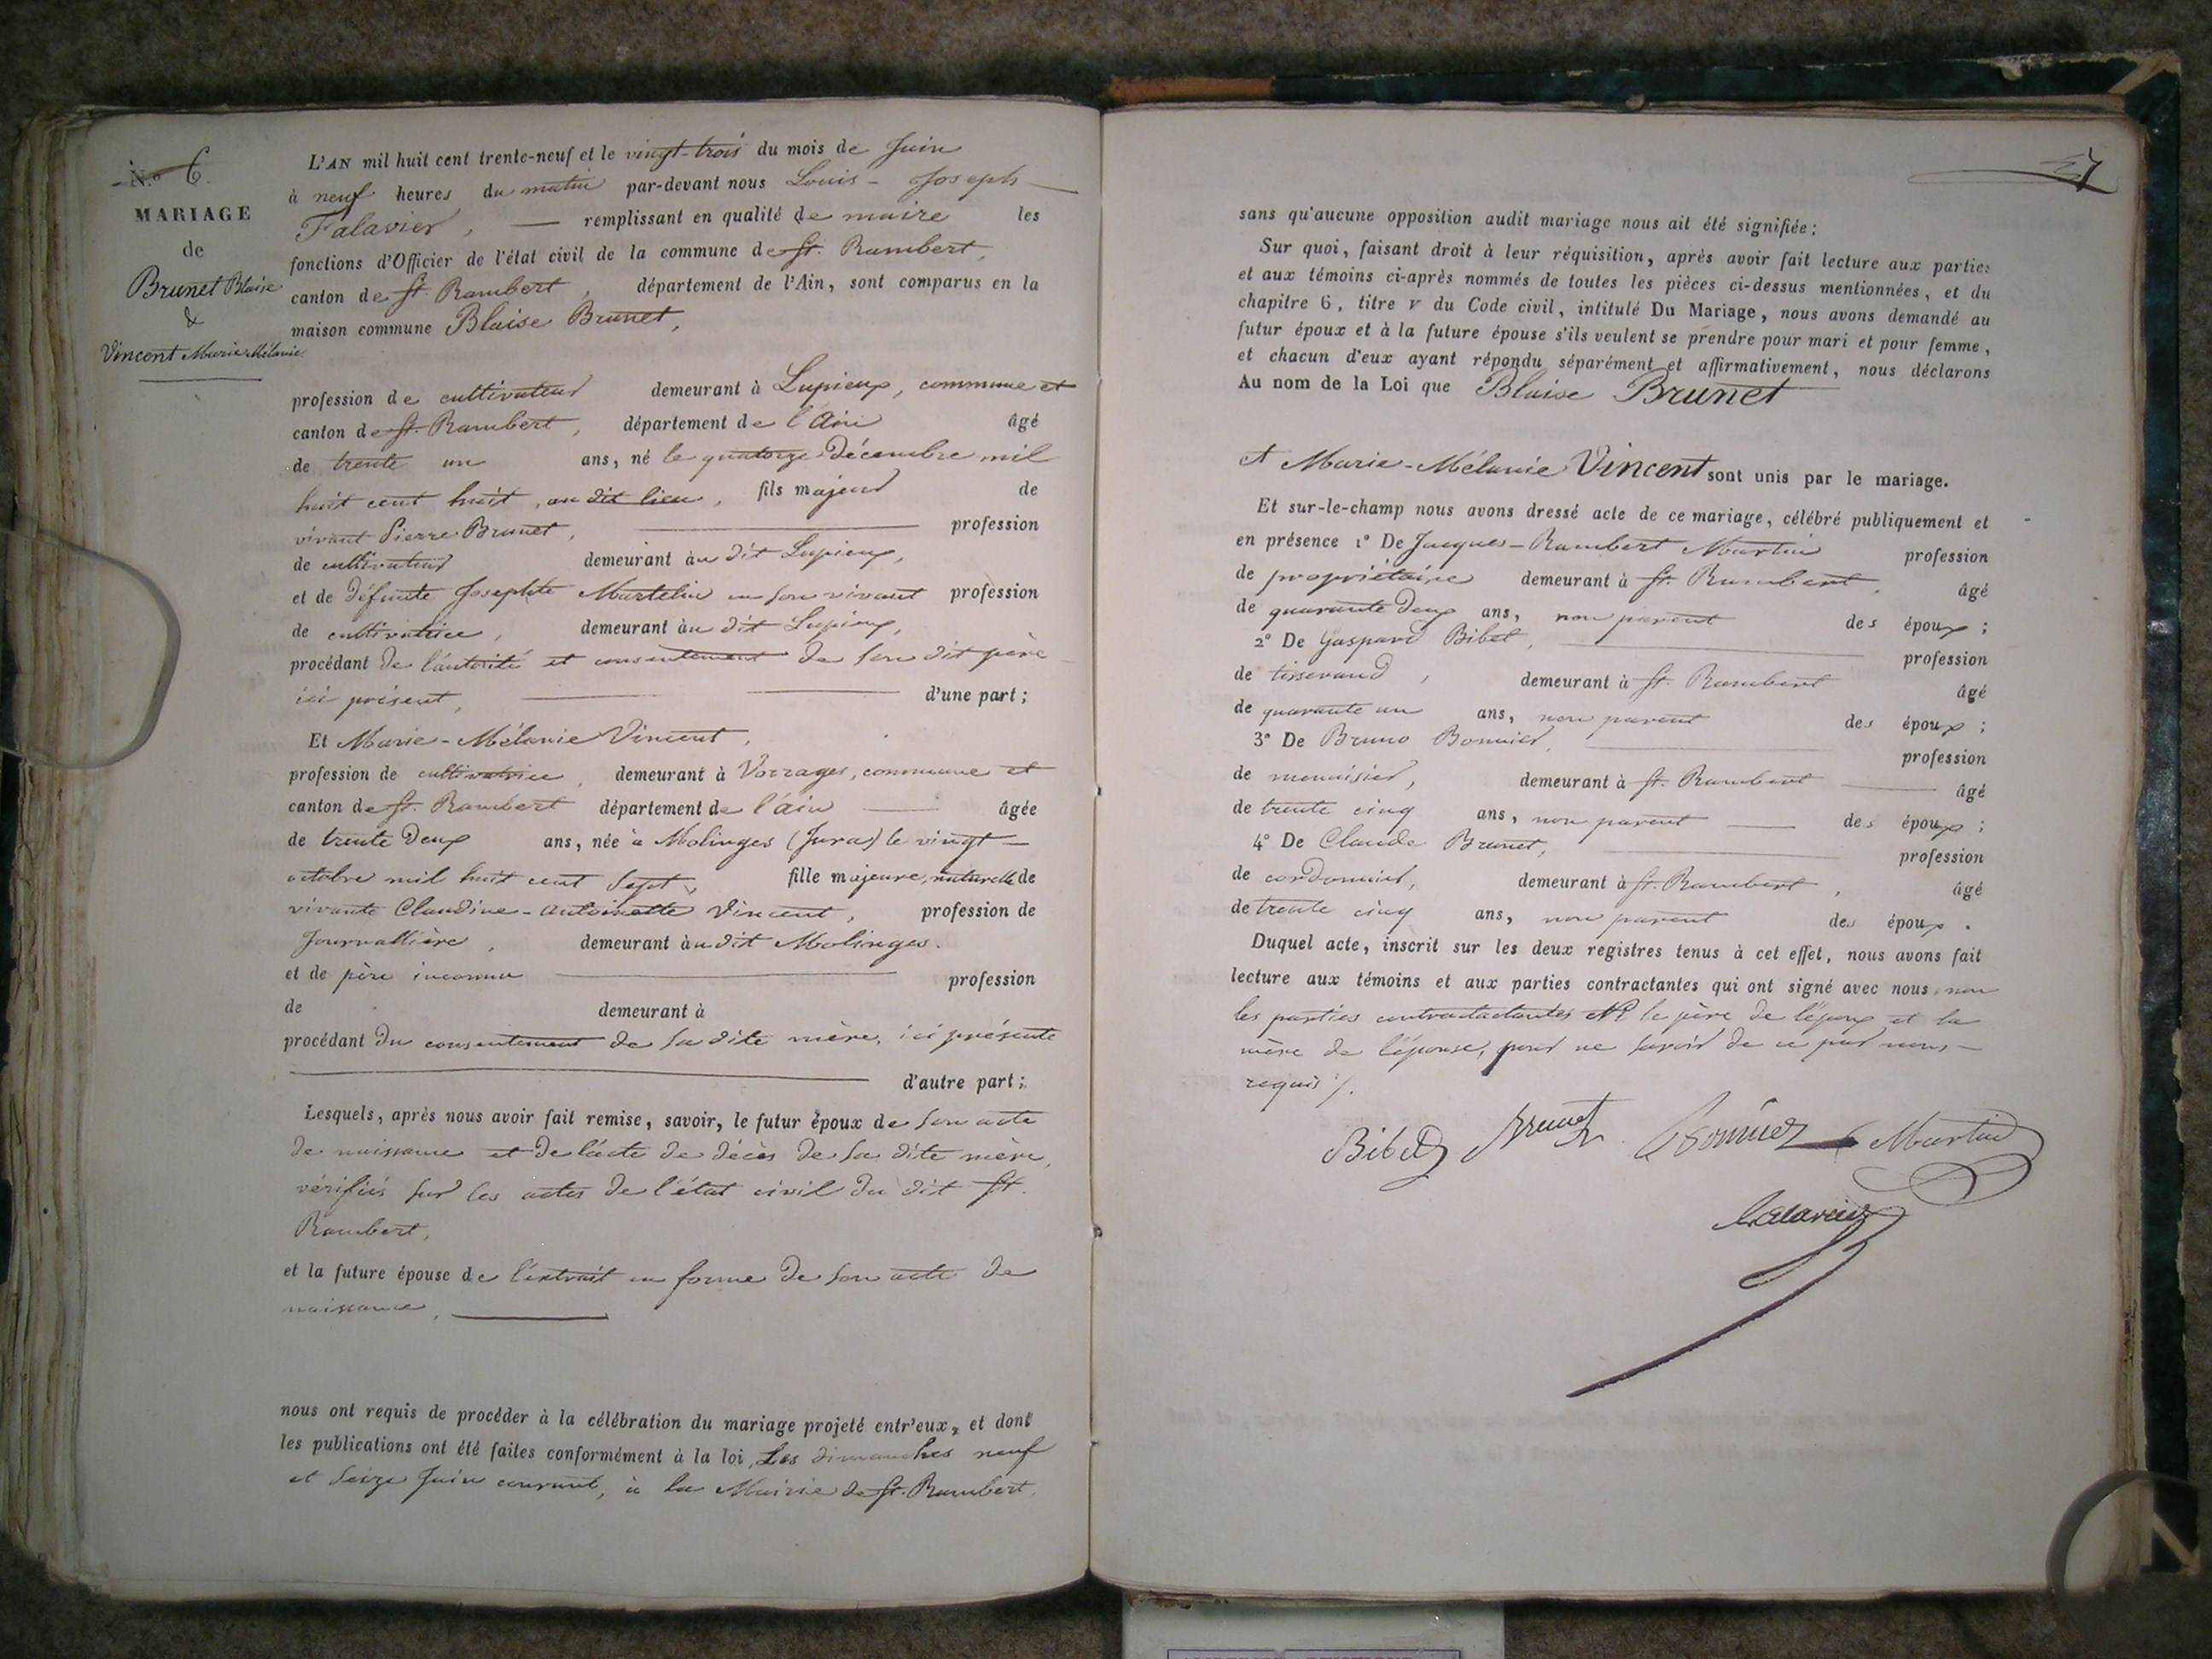 N.º 6.
MARIAGE
de
Brunet Blaise
&
Vincent Marie Mélanie
L'AN mil huit cent trente-neuf et le vingt-trois du mois de Juin
à neuf heures du matin par-devant nous Louis-Joseph
Falavier, remplissant en qualité de maire les
fonctions d'Officier de l'état civil de la commune de St. Rambert,
canton de St. Rambert, département de l'Ain, sont comparus en la
maison commune Blaise Brunet,
profession de cultivateur demeurant à Lupieux, commune et
canton de St. Rambert, département de l'Ain âgé
de trente un ans, né le quatorze Décembre mil
huit cent huit, au dit lieu, fils majeur de
vivant Pierre Brunet, profession
de cultivateur demeurant au dit Lupieux,
et de défunte Josephte Martelin en son vivant profession
de cultivatrice, demeurant au dit Lupieux,
procédant de l'autorité et consentement de son dit père
ici présent, d'une part;
Et Marie-Mélanie Vincent,
profession de cultivatrice, demeurant à Vorrages, commune et
canton de St. Rambert département de l'ain âgée
de trente Deux ans, née à Molinges (Jura) le vingt
octobre mil huit cent Sept, fille majeure, naturelle de
vivante Claudine-Antoinette Vincent, profession de
Journallière, demeurant au dit Molinges.
et de père inconnu profession
de demeurant à
procédant du consentement de sa dite mère, ici présente
d'autre part;
Lesquels, après nous avoir fait remise, savoir, le futur époux de son acte
de naissance et de l'acte de décès de sa dite mère,
vérifiés sur les actes de l'état civil du dit St.
Rambert,
et la future épouse de l'extrait en forme de son acte de
naissance,
nous ont requis de procéder à la célébration du mariage projeté entr'eux, et dont
les publications ont été faites conformément à la loi, Les dimanches neuf
et Seize Juin courant, à la Mairie de St. Rambert,
27
sans qu'aucune opposition audit mariage nous ait été signifiée;
Sur quoi, faisant droit à leur réquisition, après avoir fait lecture aux parties
et aux témoins ci-après nommés de toutes les pièces ci-dessus mentionnées, et du
chapitre 6, titre v du Code civil, intitulé Du Mariage, nous avons demandé au
futur époux et à la future épouse s'ils veulent se prendre pour mari et pour femme,
et chacun d'eux ayant répondu séparément et affirmativement, nous déclarons
Au nom de la Loi que Blaise Brunet
et Marie-Mélanie Vincent sont unis par le mariage.
Et sur-le-champ nous avons dressé acte de ce mariage, célébré publiquement et
en présence 1º De Jacques-Rambert Martin profession
de propriétaire demeurant à St. Rambert, âgé
de quarante Deux ans, non parent des époux;
2º De Gaspard Bibet, profession
de tisserand, demeurant à St. Rambert âgé
de quarante un ans, non parent des époux;
3º De Bruno Bonnier, profession
de menuisier, demeurant à St. Rambert âgé
de trente cinq ans, non parent des époux;
4º De Claude Brunet, profession
de cordonnier, demeurant à St. Rambert, âgé
de trente cinq ans, non parent des époux.
Duquel acte, inscrit sur les deux registres tenus à cet effet, nous avons fait
lecture aux témoins et aux parties contractantes qui ont signé avec nous, non
les parties contractactantes Ni le père de l'époux et la
mère de l'épouse, pour ne savoir de ce par nous
requis /.
Bibet Brunet Bonnier Martin
Falavier